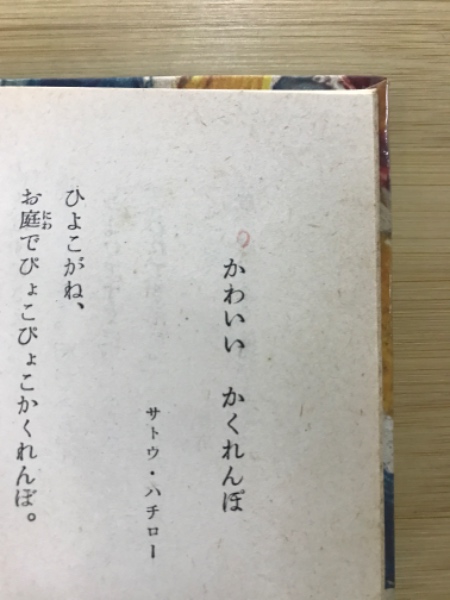 かわいい かくれんぼ
サトウ・ハチロー
ひよこがね、
お庭でぴょこぴょこかくれんぼ。
にわ